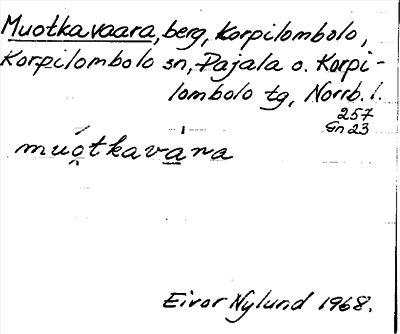 Muotkavaara, berg, Korpilombolo,
Korpilombolo sn, Pajala o. Korpi-
lombolo tg, Norrb. l.
257
Gn 23
muo̯tkava̲ra
Eivor Nylund 1968.